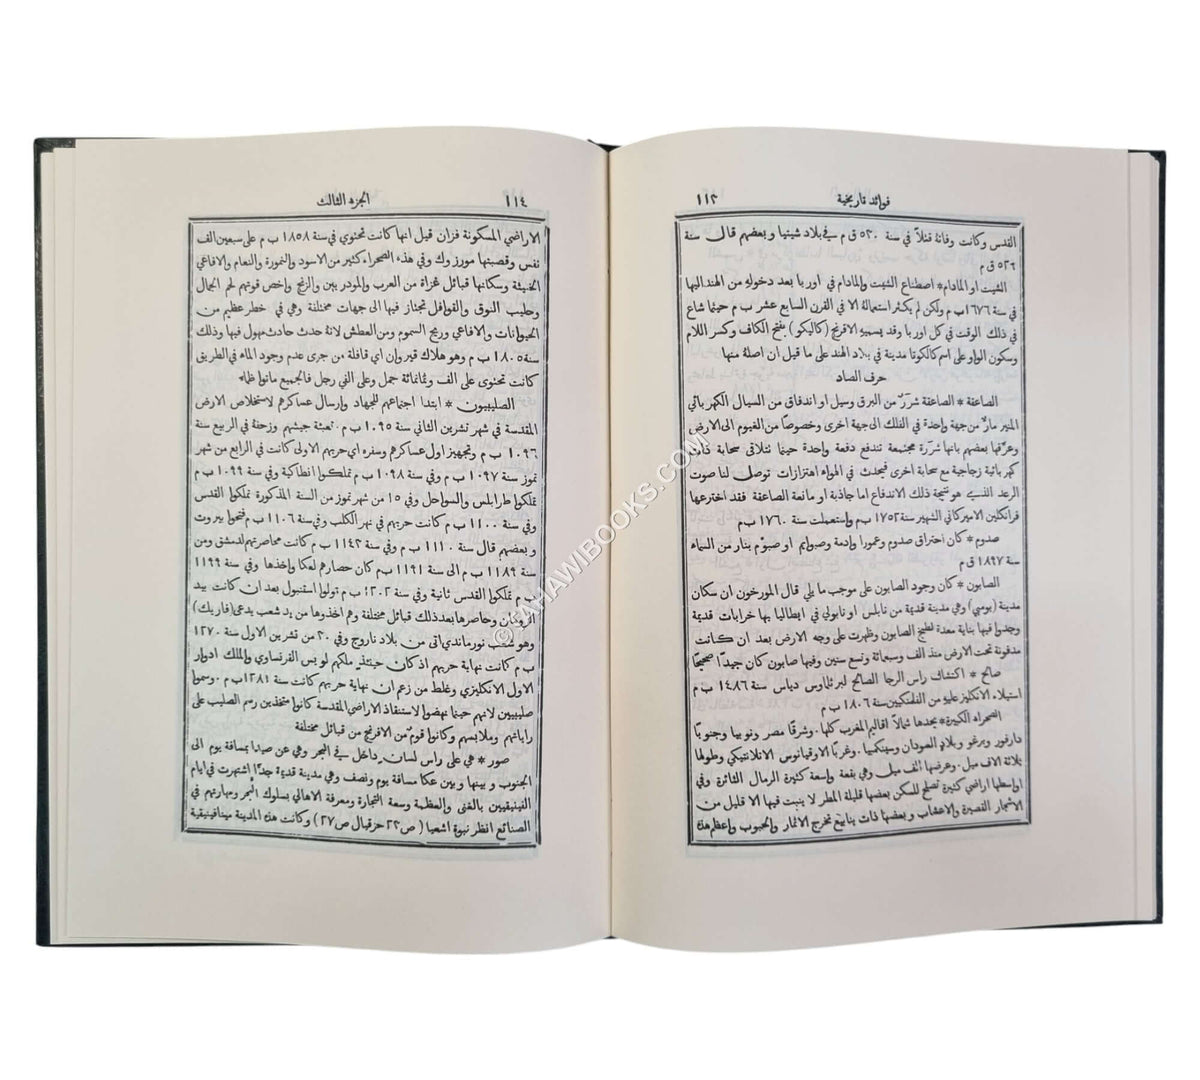 فوائد تاريخية
١١٣
القدس وكانت وفاتة قتلاً في سنة ٥٣٠ ق م في بلاد شيثيا وبعضهم قال سنة
٥٢٦ ق م
الشيت او المادام * اصطناع الشيت والمادام في اوربا بعد دخوله من الهند اليها
في سنة ١٦٧٦ ب م ولكن لم يكثر استعمالة الا في القرن السابع عشر ب م حينما شاع
في ذلك الوقت في كل اوربا وقد يسميه الافرنج (كاليكو) بفتح الكاف وكسر اللام
وسكون الواو على اسم كالكوتا مدينة في بلاد الهند على ما قيل ان اصلة منها
حرف الصاد
الصاعقة * الصاعقة شررٌ من البرق وسيل او اندفاق من السيال الكهربائي
المنير مارٌّ من جهة واحدة في الفلك الى جهة اخرى وخصوصًا من الغيوم الى الارض
وعرّفها بعضهم بانها شرارة مجتمعة تندفع دفعة واحدة حينما تتلاقى سحابة ذات
كهربائية زجاجية مع سحابة اخرى فيحدث في الهواء اهتزازات توصل لنا صوت
الرعد الذي هو نتيجة ذلك الاندفاع اما جاذبة او مانعة الصاعقة فقد اخترعها
فرانكلين الاميركاني الشهير سنة ١٧٥٢ ب م واستعملت سنة ١٧٦٠ ب م
صدوم * كان احتراق صدوم وعمورا وادمة وصبوايم او صبوْم بنار من السماء
سنة ١٨٩٧ ق م
الصابون * كان وجود الصابون على موجب ما يلي قال المورخون ان سكان
مدينة (بومبي) وهي مدينة قديمة من نابلس او نابولي في ايطاليا بها خرابات قديمة
وجدوا فيها بناية معدة لطبخ الصابون وظهرت على وجه الارض بعد ان كانت
مدفونة تحت الارض منذ الف وسبعائة وتسع سنين وفيها صابون كان جيدًا صحيحًا
صالح * اكتشاف راس الرجا الصالح لبرثلماوس دياس سنة ١٤٨٦ ب م
استيلاء الانكليز عليه من الفلمنكيين سنة ١٨٠٦ ب م
الصحراء الكبيرة * يحدها شمالاً اقاليم المغرب كلها. وشرقًا مصر ونوبيا وجنوبًا
دارفور وبرغو وبلاد السودان وسينكمبيا. وغربًا الاوقيانوس الاتلانتيكي وطولها
ثلاثة الاف ميل. وعرضها الف ميل وهي بقعة واسعة كثيرة الرمال الثائرة وفي
اواسطها اراضي كثيرة تصلح للسكن بعضها قليلة المطر لا ينبت فيها الا قليل من
الاشجار القصيرة والاعشاب وبعضها ذات ينابيع تخرج الاثمار والحبوب واعظم هذه
الجزء الثالث
١١٤
الاراضي المسكونة فزان قيل انها كانت تحتوي في سنة ١٨٥٨ ب م على سبعين الف
نفس وقصبتها مورزوك وفي هذه الصحراء كثير من الاسود والنمورة والنعام والافاعي
الخبيثة وسكانها قبائل غزاة من العرب والمودر بين والزنج واخص قوتهم لحم الجمال
وحليب النوق والقوافل تجتاز فيها الى جهات مختلفة وهي في خطر عظيم من
الحيوانات والافاعي وريح السموم ومن العطش لانة حدث حادث مهول فيها وذلك
سنة ١٨٠٥ ب م وهو هلاك قيروان اي قافلة من جرى عدم وجود الماء في الطريق
كانت تحتوي على الف وثمانمائة جمل وعلى الفي رجل فالجميع ماتوا ظماء
الصليبيون * ابتدا اجتماعهم للجهاد وإرسال عساكرهم لاستخلاص الارض
المقدسة في شهر تشرين الثاني سنة ١٠٩٥ ب م. تعبئة جيشهم وزحفة في الربيع سنة
١٠٩٦ ب م وتجهيز اول عساكرهم وسفره اي حربهم الاولى كانت في الرابع من شهر
تموز سنة ١٠٩٧ ب م وفي سنة ١٠٩٨ ب م تملكوا انطاكية وفي سنة ١٠٩٩ ب م
تملكوا طرابلس والسواحل وفي ١٥ من شهر تموز من السنة المذكورة تملكوا القدس
وفي سنة ١١٠٠ ب م كانت حربهم في نهر الكلب وفي سنة ١١٠٦ ب م فتحوا بيروت
وبعضهم قال سنة ١١١٠ ب م وفي سنة ١١٤٢ ب م كانت محاصرتهم لدمشق ومن
سنة ١١٨٩ ب م الى سنة ١١٩١ ب م كان حصارهم لعكا واخذها وفي سنة ١١٩٩
ب م تملكوا القدس ثانية وفي سنة ١٢٠٢ ب م تولوا استنبول بعد ان كانت بيد
الرومان وحاصرها بعد ذلك قبائل مختلفة وهم اخذوها من يد شعب يدعى (فاريك)
وهو شعب نورماندي اتى من بلاد ناروج وفي ٣٠ من تشرين الاول سنة ١٢٧٠
ب م كانت نهاية حربهم اذ كان حينئذ ملكهم لويس الفرنساوي والملك ادوار
الاول الانكليزي وغلط من زعم ان نهاية حربهم كانت سنة ١٢٨١ ب م. وسموا
صليبيين لانهم حينما نهضوا لاستنقاذ الاراضي المقدسة كانوا متخذين رسم الصليب على
راياتهم وملابسهم وكانوا قومٌ من الافرنج من قبائل مختلفة
صور * هي على راس لسان داخل في البحر وهي عن صيدا بمسافة يوم الى
الجنوب وبينها وبين عكا مسافة يوم ونصف وهي مدينة قديمة جدًا اشتهرت في ايام
الفينيقيين بالغنى والعظمة وسعة التجارة ومعرفة الاهالي بسلوك البحر ومهارتهم في
الصنائع انظر نبوة اشعيا (ص ٢٣ حزقيال ص ٢٧) وكانت هذه المدينة مينا فينيقية
©KAHAWIBOOKS.COM